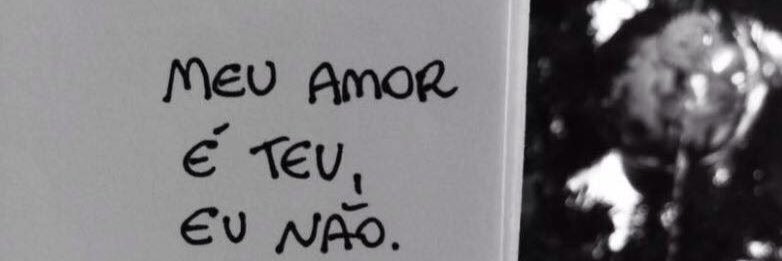 MEU AMOR
É TEU,
EU NÃO.